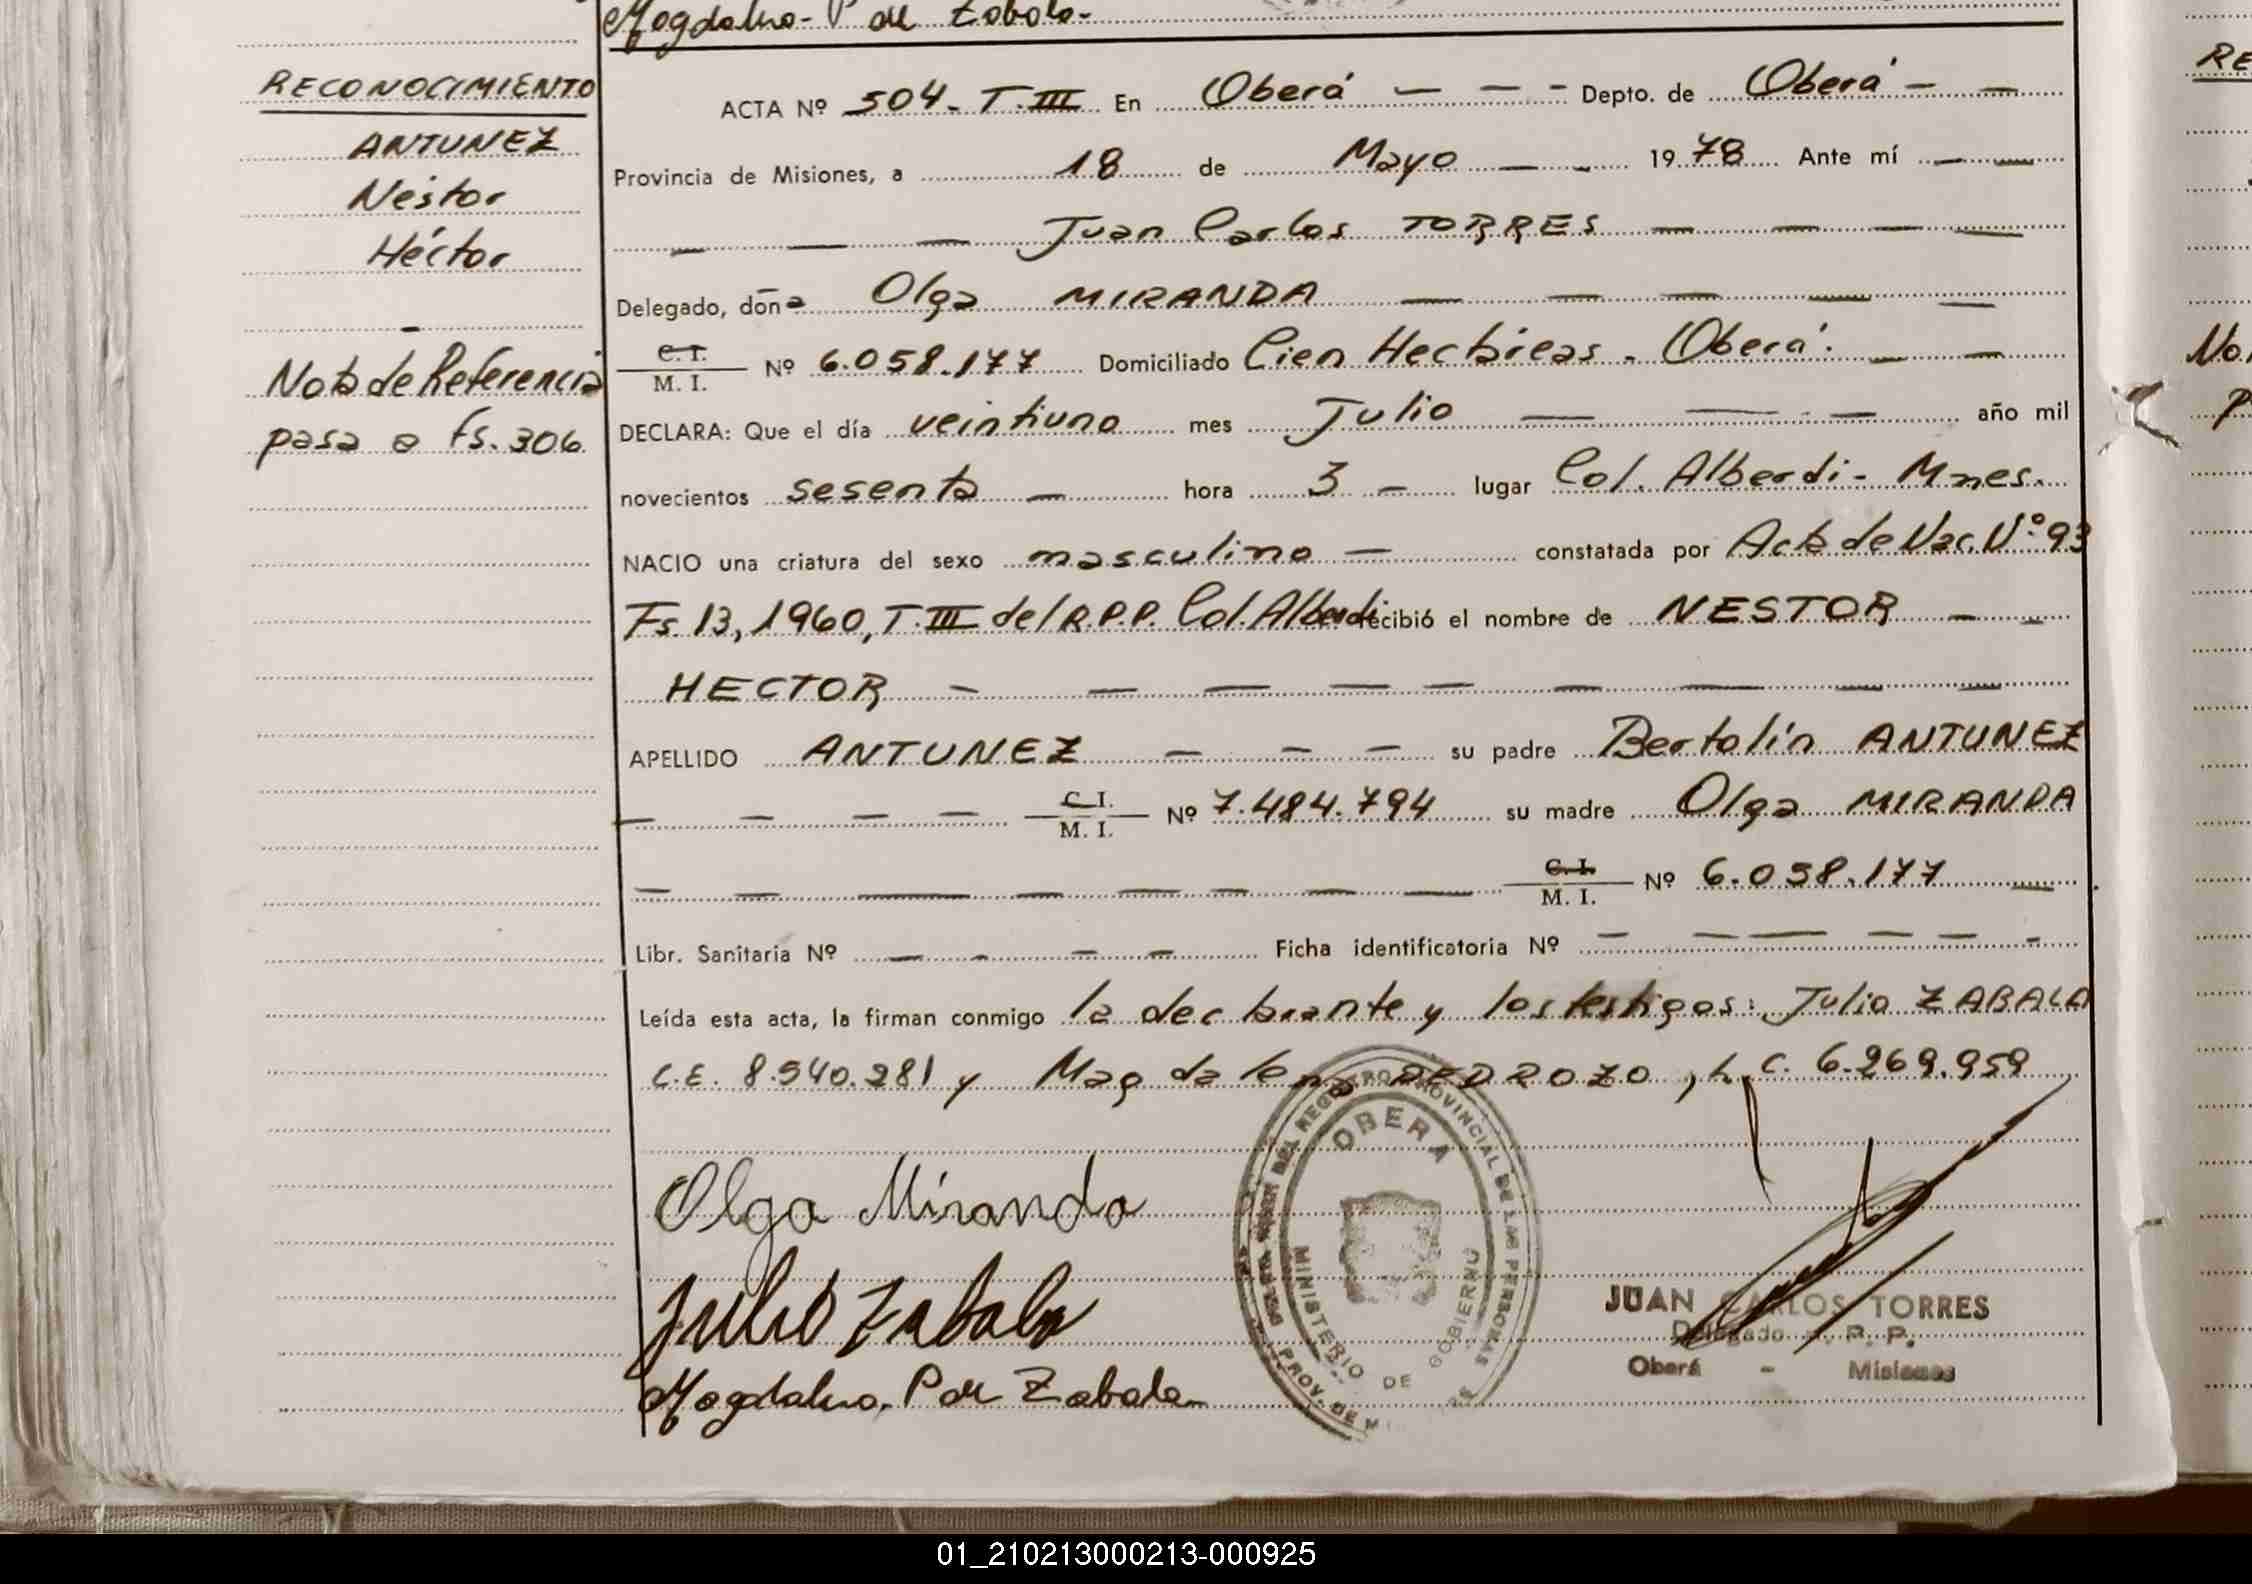 Magdalena P de Zabala-
RECONOCIMIENTO
ANTUNEZ
Néstor
Héctor
Nota de Referencia
pasa a Fs. 306
ACTA Nº 504 - T. III En Oberá - - - Depto. de Oberá - -
Provincia de Misiones, a 18 de Mayo - - 19 78 Ante mí - -
- - - Juan Carlos TORRES - - - -
Delegado, doña Olga MIRANDA - - - - -
C. I.
M. I. Nº 6.058.177 Domiciliado Cien Hectáreas - Oberá. - -
DECLARA: Que el día veintiuno mes Julio - - - año mil
novecientos sesenta - hora 3 - lugar Col. Alberdi - Mnes.
NACIO una criatura del sexo masculino - constatada por Acta de Nac. Nº 93
Fs. 13, 1960, T. III del R.P.P. Col. Alberdi recibió el nombre de NESTOR - -
HECTOR - - - - - - - - -
APELLIDO ANTUNEZ - - - su padre Bertolín ANTUNEZ
- - - - C. I.
M. I. Nº 7.484.794 su madre Olga MIRANDA
- - - - - - - - C. I.
M. I. Nº 6.058.177 -
Libr. Sanitaria Nº - - - - Ficha identificatoria Nº - - - - - -
Leída esta acta, la firman conmigo la declarante y los testigos: Julio ZABALA
C.E. 8.540.281 y Magdalena PEDROZO, L.C. 6.269.959
Olga Miranda
Julio Zabala
Magdalena P de Zabala
OBERA
MINISTERIO DE GOBIERNO
REGISTRO PROVINCIAL DE LAS PERSONAS
PROV. DE
JUAN CARLOS TORRES
Delegado R. P. P.
Oberá - Misiones
RE
No.
P
01_210213000213-000925